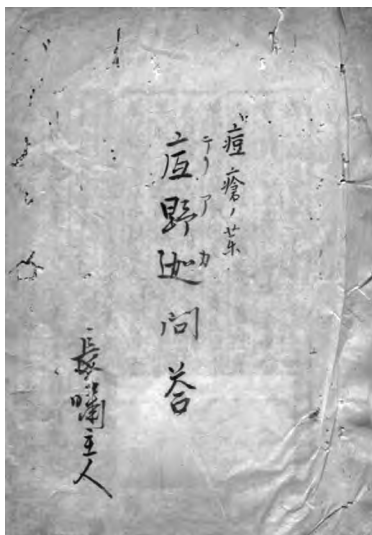 痘瘡ノ薬
テリアカ
底野迦問答
長嘯主人